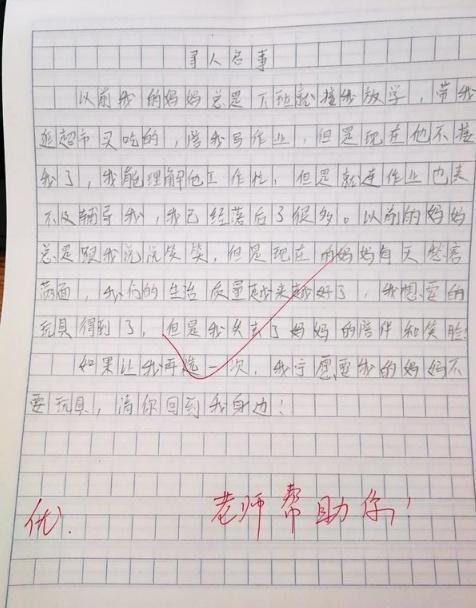 寻人启事
以前我的妈妈总是下班就接我放学，带我
逛超市买吃的，陪我写作业，但是现在他不接
我了，我能理解他工作忙，但是就连作业也来
不及辅导我，我已经落后了很多。以前的妈妈
总是跟我说说笑笑，但是现在的妈妈每天愁眉
苦面，我们的生活质量越来越好了，我想要的
玩具得到了，但是我失去了妈妈的陪伴和笑脸
如果让我再选一次，我宁愿要我的妈妈不
要玩具，请你回到我身边！
优. 老师帮助你！